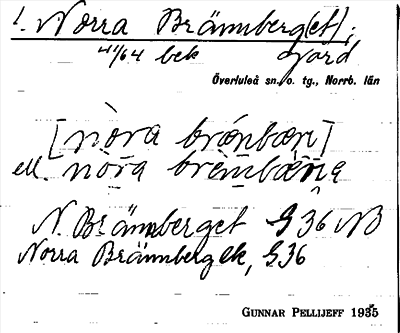 1. Norra Brännberg(et);
41/64 bek gård
Överluleå sn. o. tg., Norrb. län
[nòra brǽnbærj]
ell. nòra brèmbæ̀rja
N. Brännberget G 36 NB
Norra Brännberget, G36
GUNNAR PELLIJEFF 1935